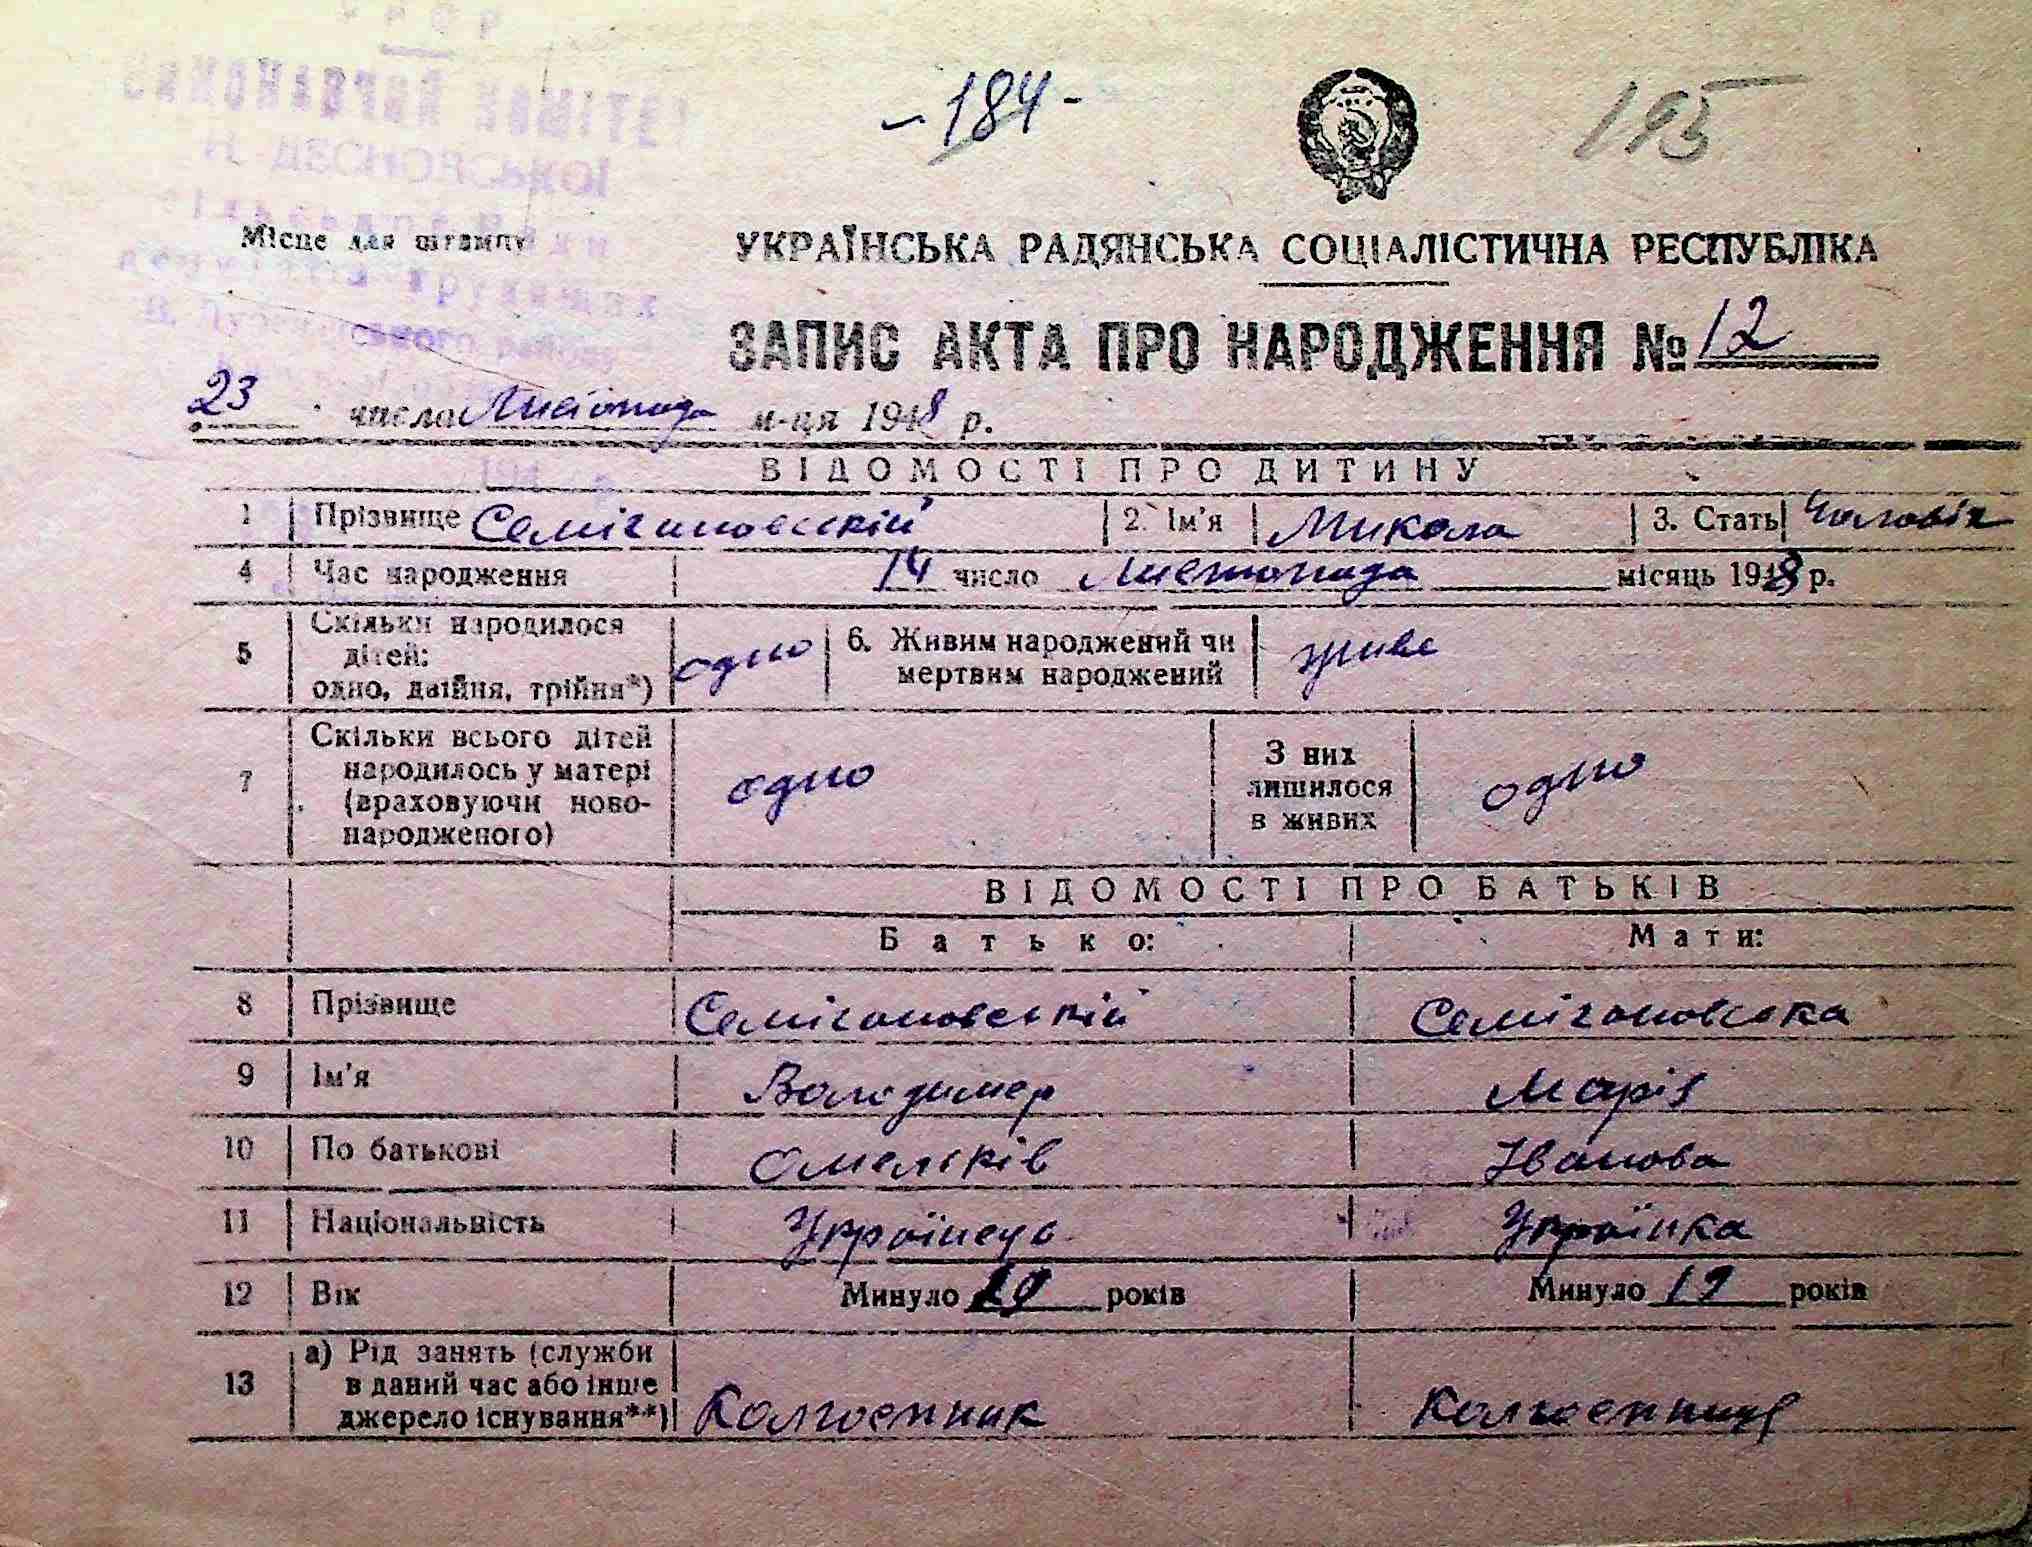 УРСР
ВИКОНАВЧИЙ КОМІТЕТ
Н. ДЕСНОВСЬКОЇ
сільської ради
депутатів трудящих
району
- 184 -
195
Місце для штампу
УКРАЇНСЬКА РАДЯНСЬКА СОЦІАЛІСТИЧНА РЕСПУБЛІКА
ЗАПИС АКТА ПРО НАРОДЖЕННЯ № 12
23 числа Листопада м-ця 1948 р.
ВІДОМОСТІ ПРО ДИТИНУ
1 Прізвище Семігановсскій 2. Ім'я Микола 3. Стать Чоловік
4 Час народження 14 число Листопада місяць 1948 р.
5 Скільки народилося дітей: одно, двійня, трійня*) одно 6. Живим народжений чи мертвим народжений живе
7 Скільки всього дітей народилось у матері (враховуючи ново-народженого) одно З них лишилося в живих одно
ВІДОМОСТІ ПРО БАТЬКІВ
Батько: Мати:
8 Прізвище Семігановскій Семігановска
9 Ім'я Володимер Марія
10 По батькові Омельків Іванова
11 Національність Українець Українка
12 Вік Минуло років Минуло 19 років
13 а) Рід занять (служби в даний час або інше джерело існування**) Колгоспник Колгоспниця